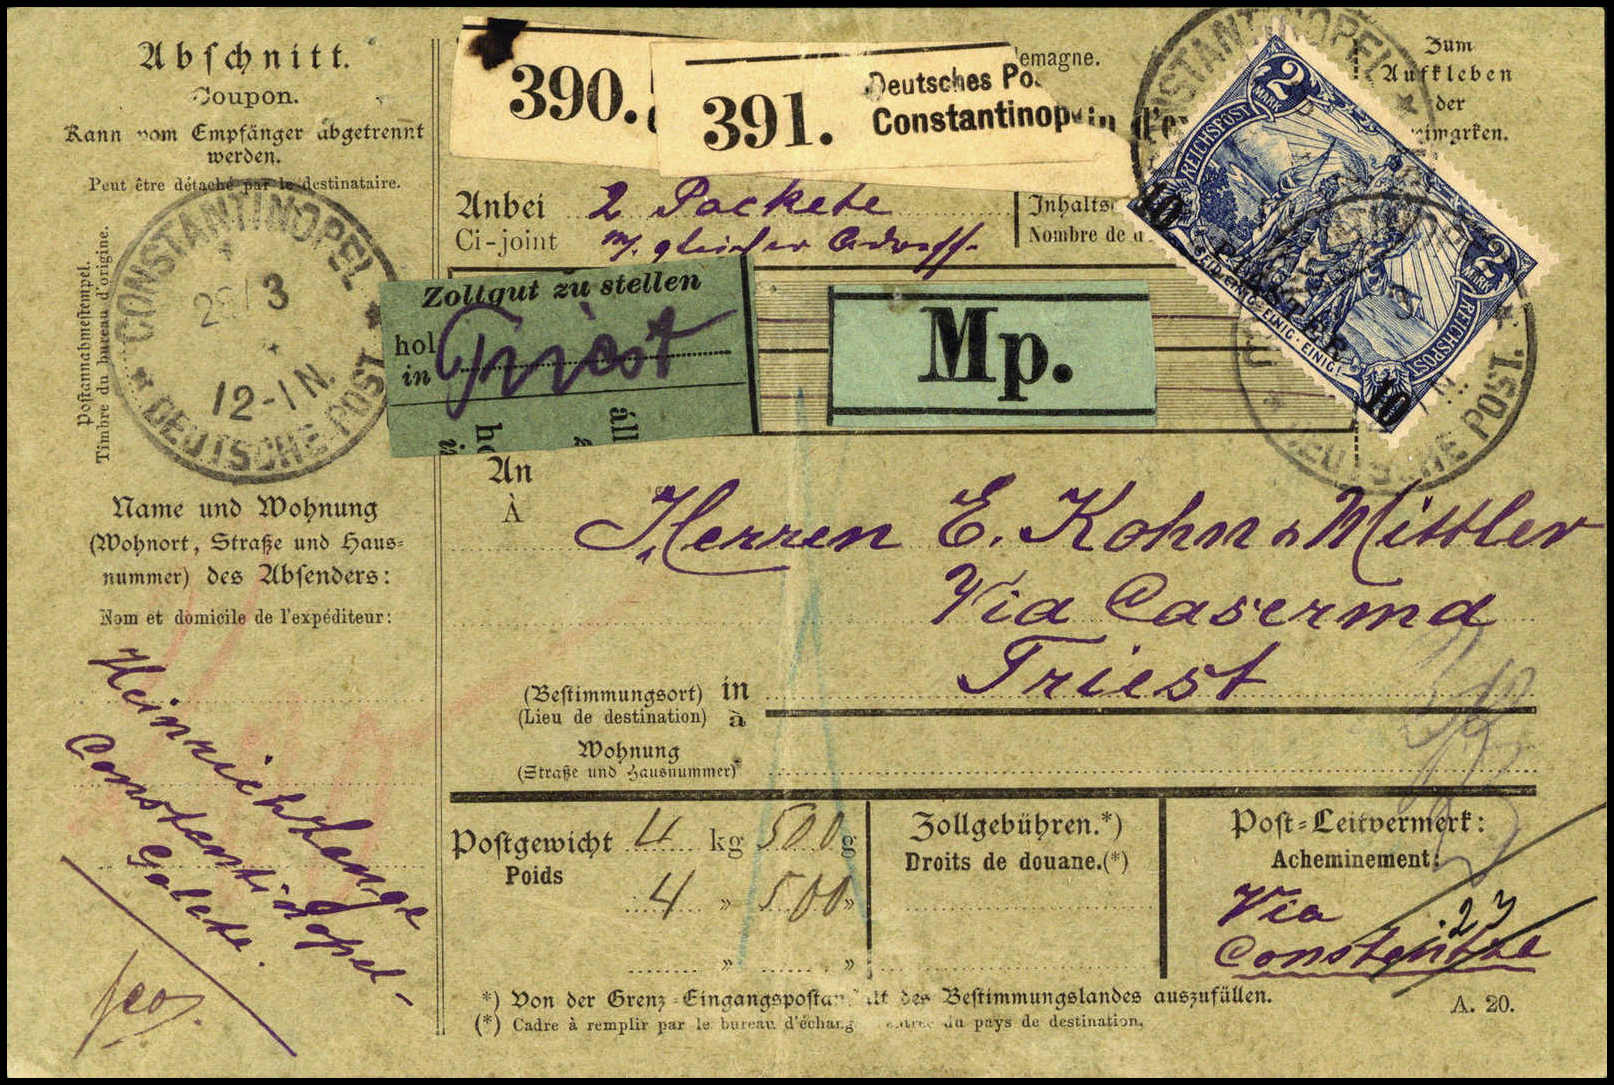 Abschnitt.
Coupon.
Kann vom Empfänger abgetrennt
werden.
Peut être détaché par le destinataire.
Postannahmestempel.
Timbre du bureau d'origine.
CONSTANTINOPEL
3
12-1N.
DEUTSCHE POST
Name und Wohnung
(Wohnort, Straße und Haus=
nummer) des Absenders:
Nom et domicile de l'expéditeur:
Heinrich Lange
Constantinopel-
Galata.
390.
391.
Deutsches Po
Constantinop
emagne.
Zum
Aufkleben
der
Anbei 2 Packete
Ci-joint
Nombre de
Zollgut zu stellen
in Triest
Mp.
CONSTANTINOPEL
2 MARK
REICHSPOST
10 PIASTER 10
SEID EINIG-EINIG-EINIG!
2 MARK
REICHSPOST
DEUTSCHE POST.
An
À
Herren E. Kohn & Mittler
Via Caserma
Triest
(Bestimmungsort) in
(Lieu de destination) à
Wohnung
(Straße und Hausnummer)
Postgewicht 4 kg 500 g
Poids
4 " 500 "
" "
Zollgebühren.*)
Droits de douane.(*)
Post=Leitvermerk:
Acheminement:
Via
Constantza
23
*) Von der Grenz=Eingangspostanstalt des Bestimmungslandes auszufüllen.
(*) Cadre à remplir par le bureau d'échange d'entrée du pays de destination.
A. 20.